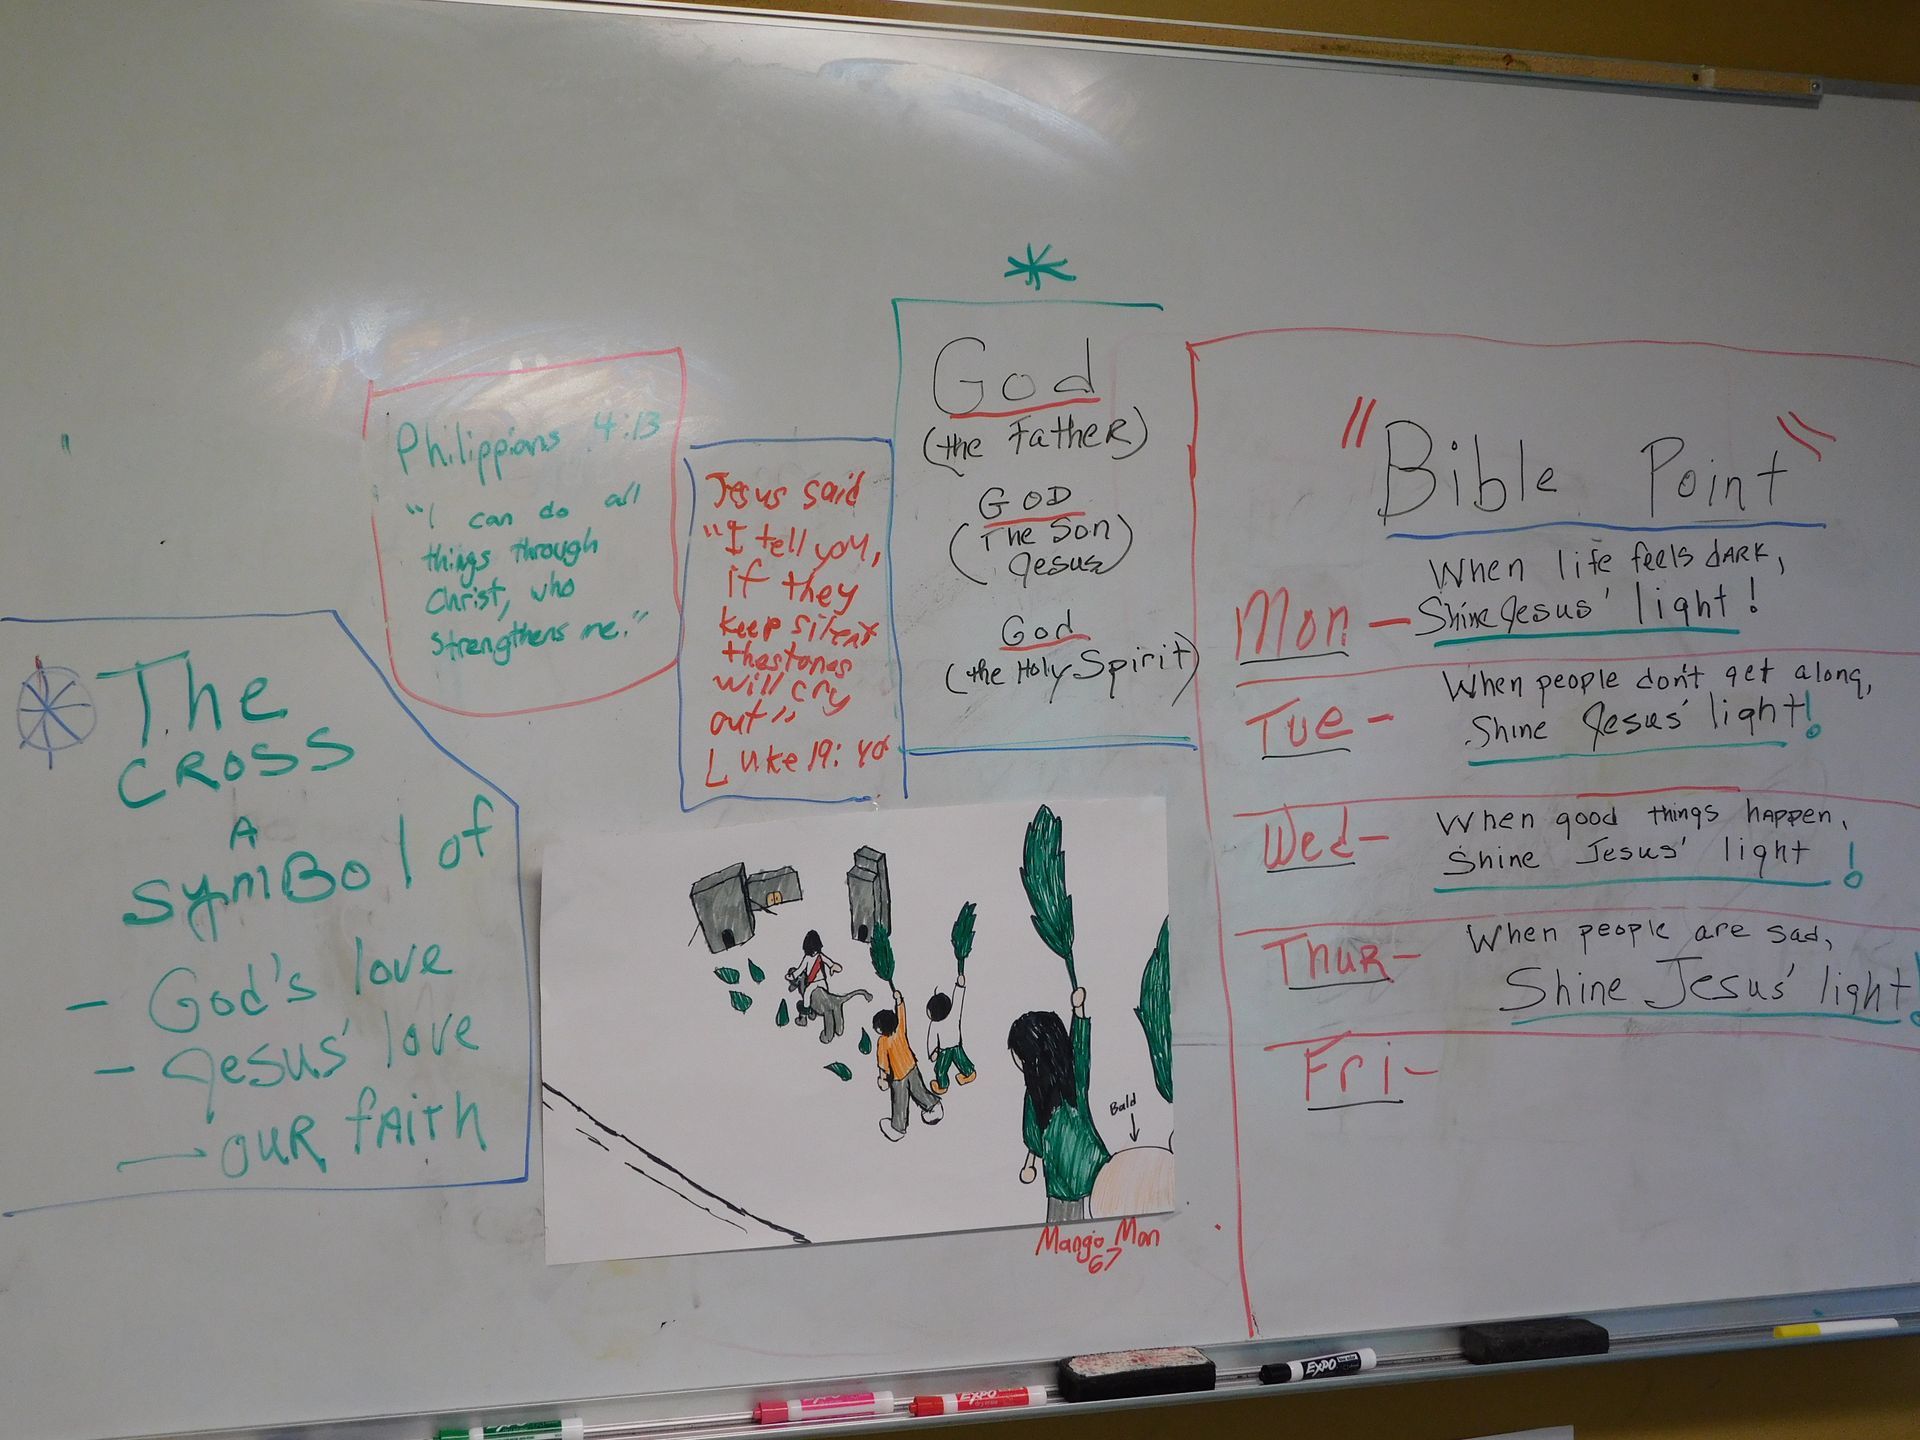 The
CROSS
A
symBol of
- God's love
- Jesus' love
— OUR fAITH
Philippians 4:13
"I can do all
things through
Christ, who
strengthens me."
Jesus said
"I tell you,
if they
keep silent
the stones
will cry
out"
Luke 19:40
God
(the Father)
GOD
(The Son
Jesus)
God
(the Holy Spirit)
"Bible Point"
Mon - When life feels dARK,
Shine Jesus' light!
Tue - When people don't get along,
Shine Jesus' light!
Wed - When good things happen,
Shine Jesus' light!
Thur - When people are sad,
Shine Jesus' light!
Fri -
Bald
Mango Man
67
EXPO
EXPO
EXPO